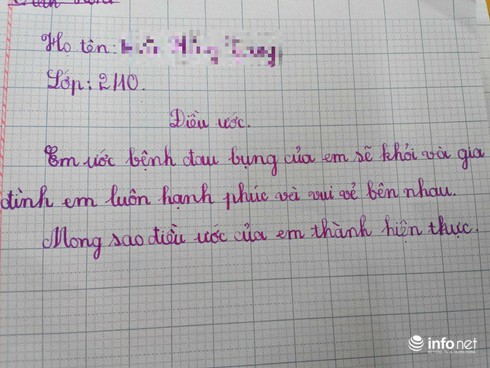 Họ tên:
Lớp: 2/10.
Điều ước.
Em ước bệnh đau bụng của em sẽ khỏi và gia
đình em luôn hạnh phúc và vui vẻ bên nhau.
Mong sao điều ước của em thành hiện thực.
infonet